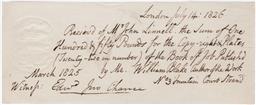 London July 14: 1826
Recievd of Mr John Linnell, the Sum of One
Hundred & fifty Pounds for the Copy-right & Plates
(Twenty-two in number) of the Book of Job. Publishd
March 1825 by Me, William Blake Author of the Work
Witness: Edwd Jno Chance No 3 Fountain Court Strand